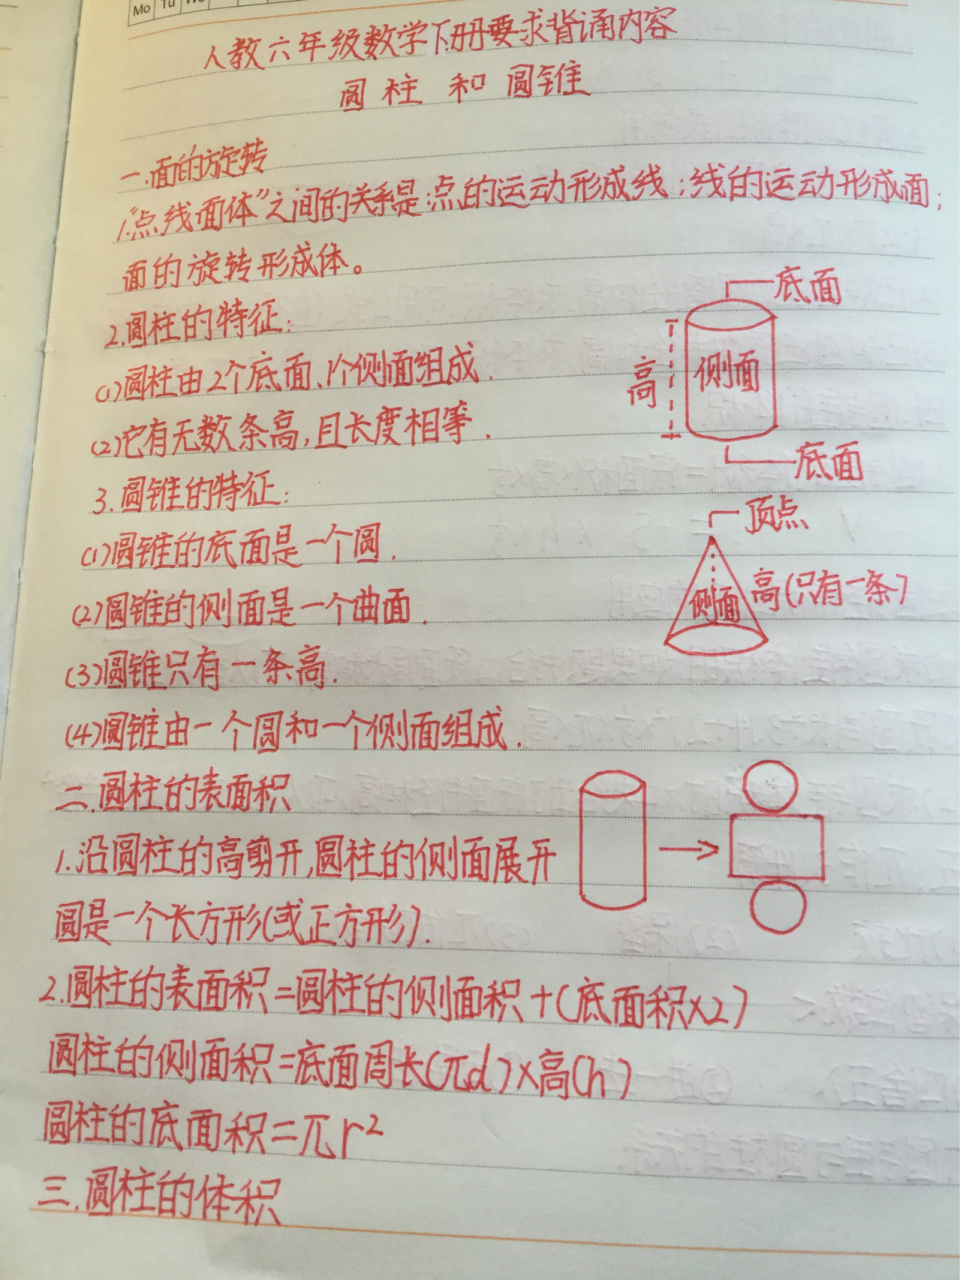 Mo Tu We
人教六年级数学下册要求背诵内容
圆柱 和 圆锥
一.面的旋转
1."点线面体"之间的关系是:点的运动形成线;线的运动形成面;
面的旋转形成体。
2.圆柱的特征:
(1)圆柱由2个底面、1个侧面组成.
(2)它有无数条高,且长度相等.
底面
侧面
高
底面
3.圆锥的特征:
(1)圆锥的底面是一个圆.
(2)圆锥的侧面是一个曲面.
(3)圆锥只有一条高.
(4)圆锥由一个圆和一个侧面组成.
顶点
侧面
高(只有一条)
二.圆柱的表面积
1.沿圆柱的高剪开,圆柱的侧面展开
圆是一个长方形(或正方形).
2.圆柱的表面积=圆柱的侧面积+(底面积×2)
圆柱的侧面积=底面周长(πd)×高(h)
圆柱的底面积=πr²
三.圆柱的体积